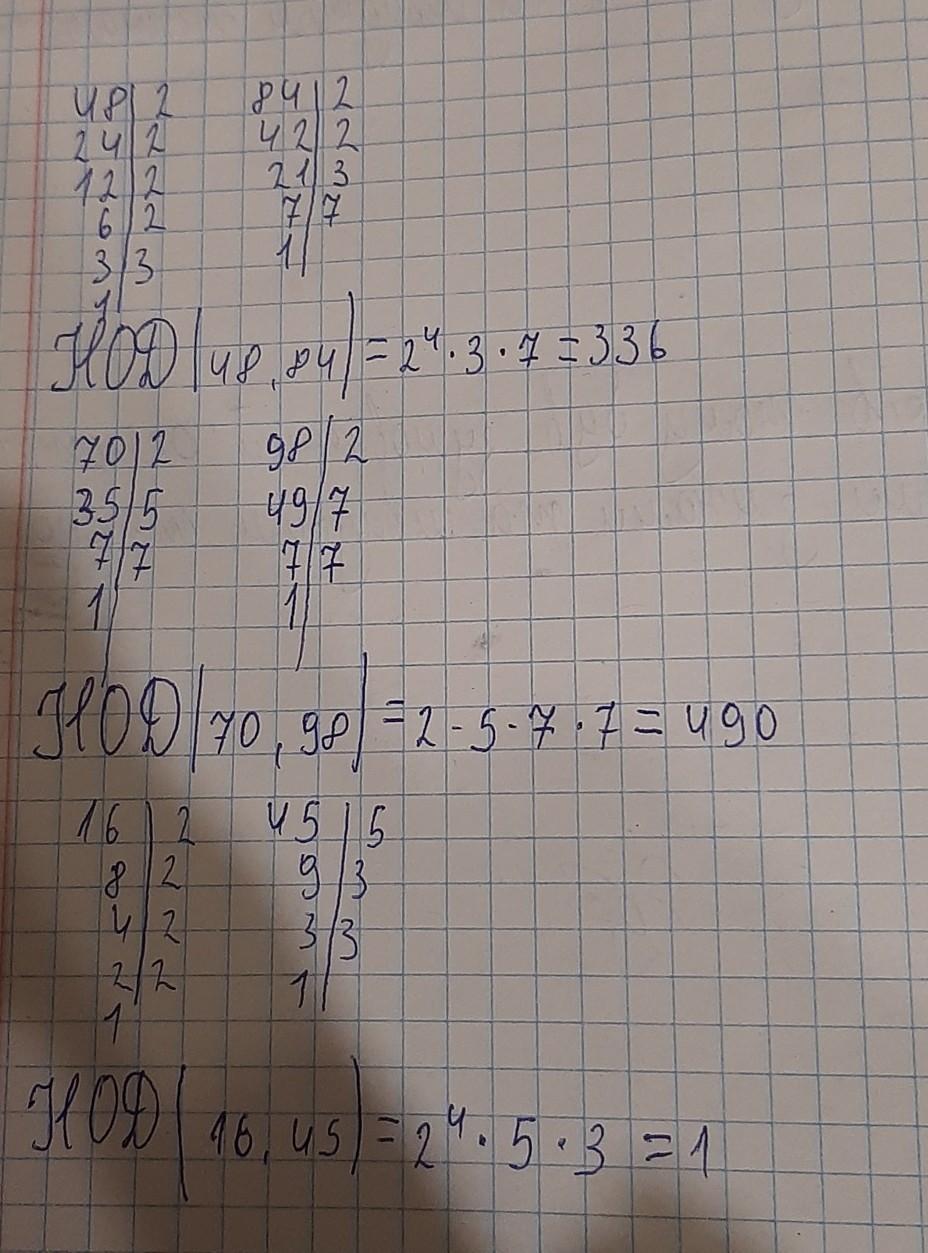 48|2 84|2
24|2 42|2
12|2 21|3
6|2 7|7
3|3 1|
1|
НОД(48,84)=2⁴·3·7=336
70|2 98|2
35|5 49|7
7|7 7|7
1| 1|
НОД(70,98)=2-5-7·7=490
16|2 45|5
8|2 9|3
4|2 3|3
2|2 1|
1
НОД(16,45)=2⁴·5·3=1